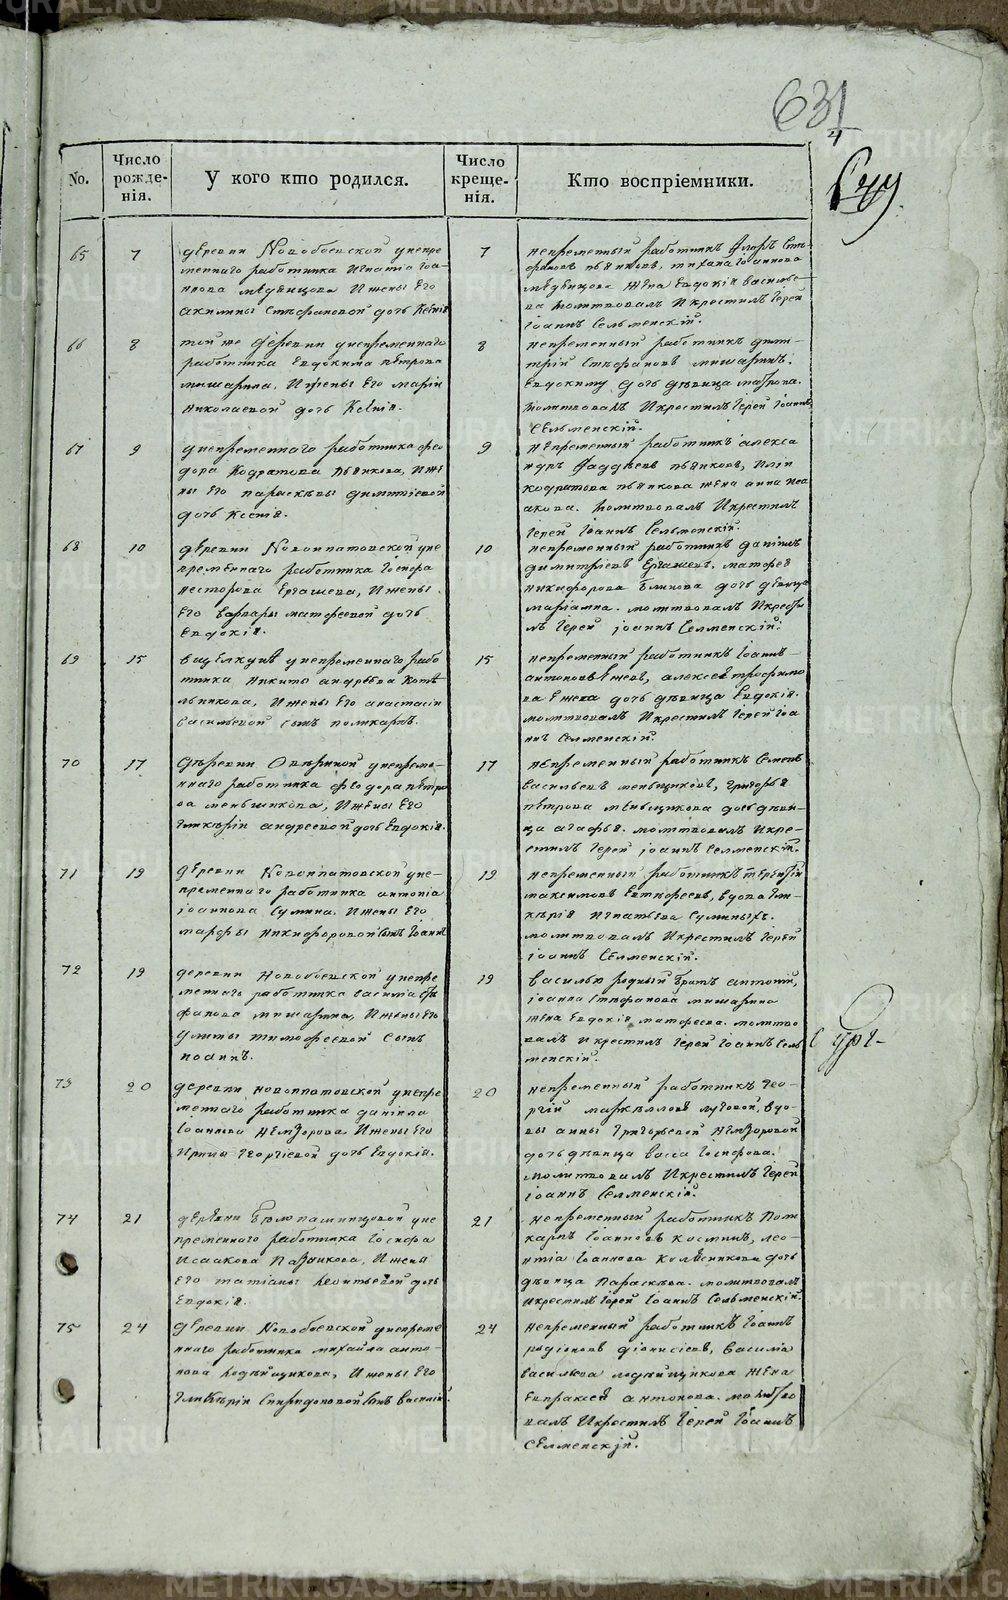 631
4
No.
Число рожде-нія.
У кого кто родился.
Число креще-нія.
Кто воспріемники.
65
7
деревни Новобоевской унепре
меннаго работника Игнатіа Іоа-
ннова медвищова Ижены Его
акилины Стефановой дочь Ксенія
7
непременный работникъ Флоръ Сте-
фановъ пьянковъ, Іоаннова
медвищова жена Евдокія василье-
ва молитвовалъ Икрестилъ Іерей
Іоаннъ Сельменскій.
66
8
той же деревни унепременнаго
работника Евдокима петрова
мишарина, Ижены Его маріи
николаевой дочь Ксенія.
8
непременный работникъ дими-
трій Стефановъ мишаринъ.
Евдокиму дочь девица матрона.
молитвовалъ Икрестилъ Іерей Іоаннъ
Сельменскій.
67
9
унепременнаго работника фео
дора Кодратова пьянкова, Иже
ны Его параскевы димитріевой
дочь Ксенія.
9
непременный работникъ алекса
ндръ Фаддеевъ пьянковъ, Иліи
кодратова пьянкова жена анна Иса
акова. молитвовалъ Икрестилъ
Іерей Іоаннъ Сельменскій.
68
10
деревни Новоипатовской уне
пременнаго работника Іосифа
несторова Ергашева, Ижены
Его варвары матфеевой дочь
Евдокія.
10
непременный работникъ даніилъ
димитріевъ Ергашевъ. матфея
никифорова блинова дочь девица
маріамна. молитвовалъ Икрести
лъ Іерей Іоаннъ Селменскій.
69
15
вщелкунъ унепременнаго рабо
тника никиты андреева коте
льникова, Ижены Его анастасіи
васильевой сынъ поликарпъ.
15
непременный работникъ Іоаннъ
антоновъ Ежевъ, алексея трофимо
ва Ежева дочь девица Евдокія.
молитвовалъ Икрестилъ Іерей Іоа
ннъ Селменскій.
70
17
деревни Овериной унепреме-
ннаго работника феодора петро
ва меньшикова, Ижены Его
гликеріи андреевой дочь Евдокія.
17
непременный работникъ Семенъ
васильевъ меньщиковъ, григорья
петрова меньщикова дочь деви-
ца агафья. молитвовалъ Икре-
стилъ Іерей Іоаннъ Селменскій.
71
19
деревни Новоипатовской уне-
пременнаго работника антоніа
Іоаннова Сумина. Ижены Его
марфы никифоровой сынъ Іоаннъ
19
непременный работникъ терентій
максимовъ Евтифеевъ, вдова гли-
керія игнатьева Суминыхъ.
молитвовалъ Икрестилъ Іерей
Іоаннъ Селменскій.
72
19
деревни новобоевской унепре
меннаго работника василіа Сте
фанова мишарина, Ижены Его
улиты тимофеевой сынъ
иоаннъ.
19
василью родный братъ антоній,
Іоанна Стефанова мишарина
жена Евдокія матфеева. молитво
валъ Икрестилъ Іерей Іоаннъ Сель
менскій.
73
20
деревни новоипатовской унепре
меннаго работника даніила
Іоаннова немзорова Ижены Его
Ирины Георгіевой дочь Евдокія.
20
непременный работникъ Гео-
ргій маркелловъ луговой, вдо-
вы анны григорьевой немзоровой
дочь девица васса Іосифова.
молитвовалъ Икрестилъ Іерей
Іоаннъ Селменскій.
74
21
деревни белопашинцовой уне
пременнаго работника Іосифа
Исаакова Ижены
Его татіаны леонтьевой дочь
Евдокія.
21
непременный работникъ Поли
карпъ Іоанновъ костинъ, лео-
нтіа Іоаннова колесникова дочь
девица параскева. молитвовалъ
Икрестилъ Іерей Іоаннъ Сельменскій.
75
24
деревни Новобоевской унепреме
ннаго работника михайла анто-
нова Ижены Его
гликеріи Спиридоновой сынъ василій.
24
непременный работникъ Іоаннъ
родіоновъ діонисіевъ, василіа
васильева жена
Евпраксея антонова. молитво
валъ Икрестилъ Іерей Іоаннъ
Селменскій.
METRIKI.GASO-URAL.RU